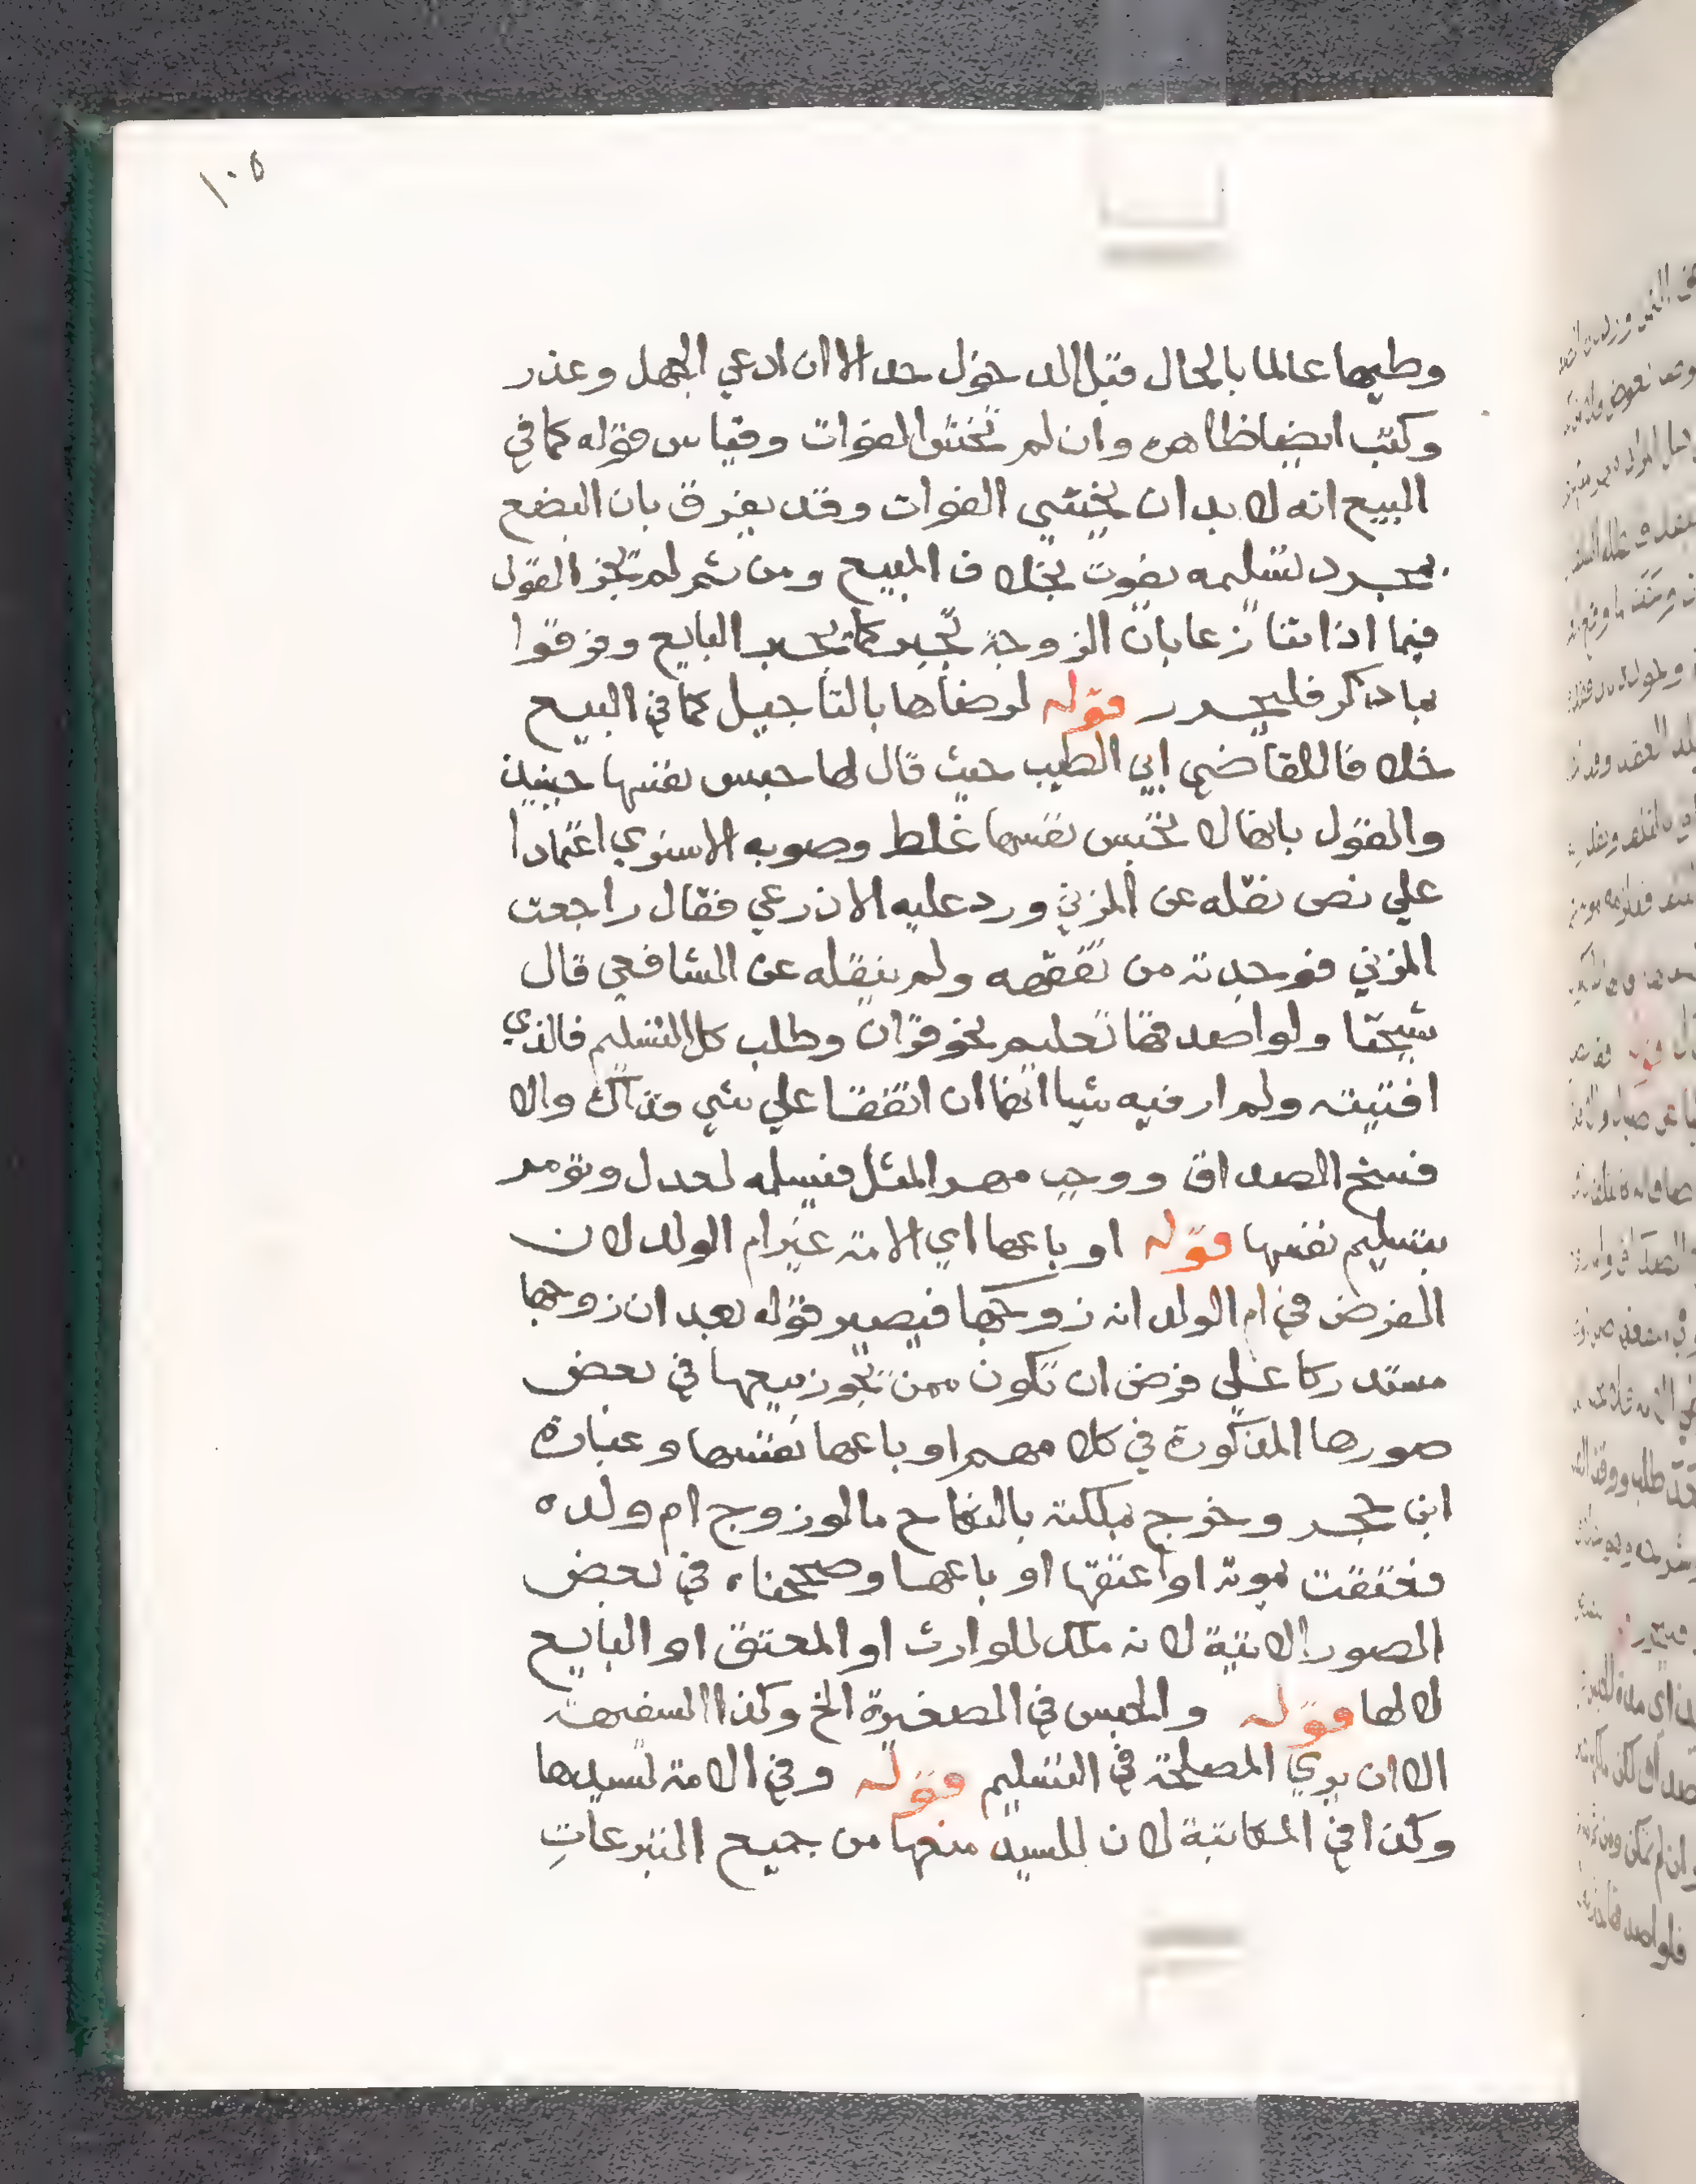 ١٠٥
وطيها عالما بالحال قبل الدخول حد الا ان ادعي الجهل وعذر
وكتب ايضا ظاهره وان لم تخش الفوات وقياس قوله كما في
البيع انه لا بد ان يخشي الفوات وقد يفرق بان البضع
بمجرد تسليمه يفوت بخلاف المبيع ومن ثم لم يجز القول
فيما اذا تنازعا بان الزوجة تجبر كما يجبر البايع وفرقوا
بما ذكر فليحرر قوله لرضاها بالتاجيل كما في البيع
خلافا للقاضي ابي الطيب حيث قال لها حبس نفسها حينيذ
والقول بانها لا تحبس نفسها غلط وصوبه الاسنوي اعتمادا
علي نص نقله عن المزني ورد عليه الاذرعي فقال راجعت
المزني فوجدته من تفقهه ولم ينقله عن الشافعي قال
شيخنا ولو اصدقها تعليم نحو قران وطلب كل التسليم فالذي
افتيته ولم ار فيه شيا انهما ان اتفقا علي شي فذاك والا
فسخ الصداق ووجب مهر المثل فيسلمه لعدل وتومر
بتسليم نفسها قوله او باعها اي الامة غير ام الولد لان
الفرض في ام الولد انه زوجها فيصير قوله بعد ان زوجها
مستدركا علي فرض ان تكون ممن يجوز بيعها في بعض
صورها المذكورة في كلامهم او باعها نفسها وعبارة
ابن حجر وخرج بملكته بالنكاح ما لو زوج ام ولده
فعتقت بموته او اعتقها او باعها وصححناه في بعض
الصور الاتية لانه ملك للوارث او المعتق او البايع
لا لها قوله والحبس في الصغيرة الخ وكذا السفيهة
الا ان يري المصلحة في التسليم قوله وفي الامة لسيدها
وكذا في المكاتبة لان للسيد منعها من جميع التبرعات